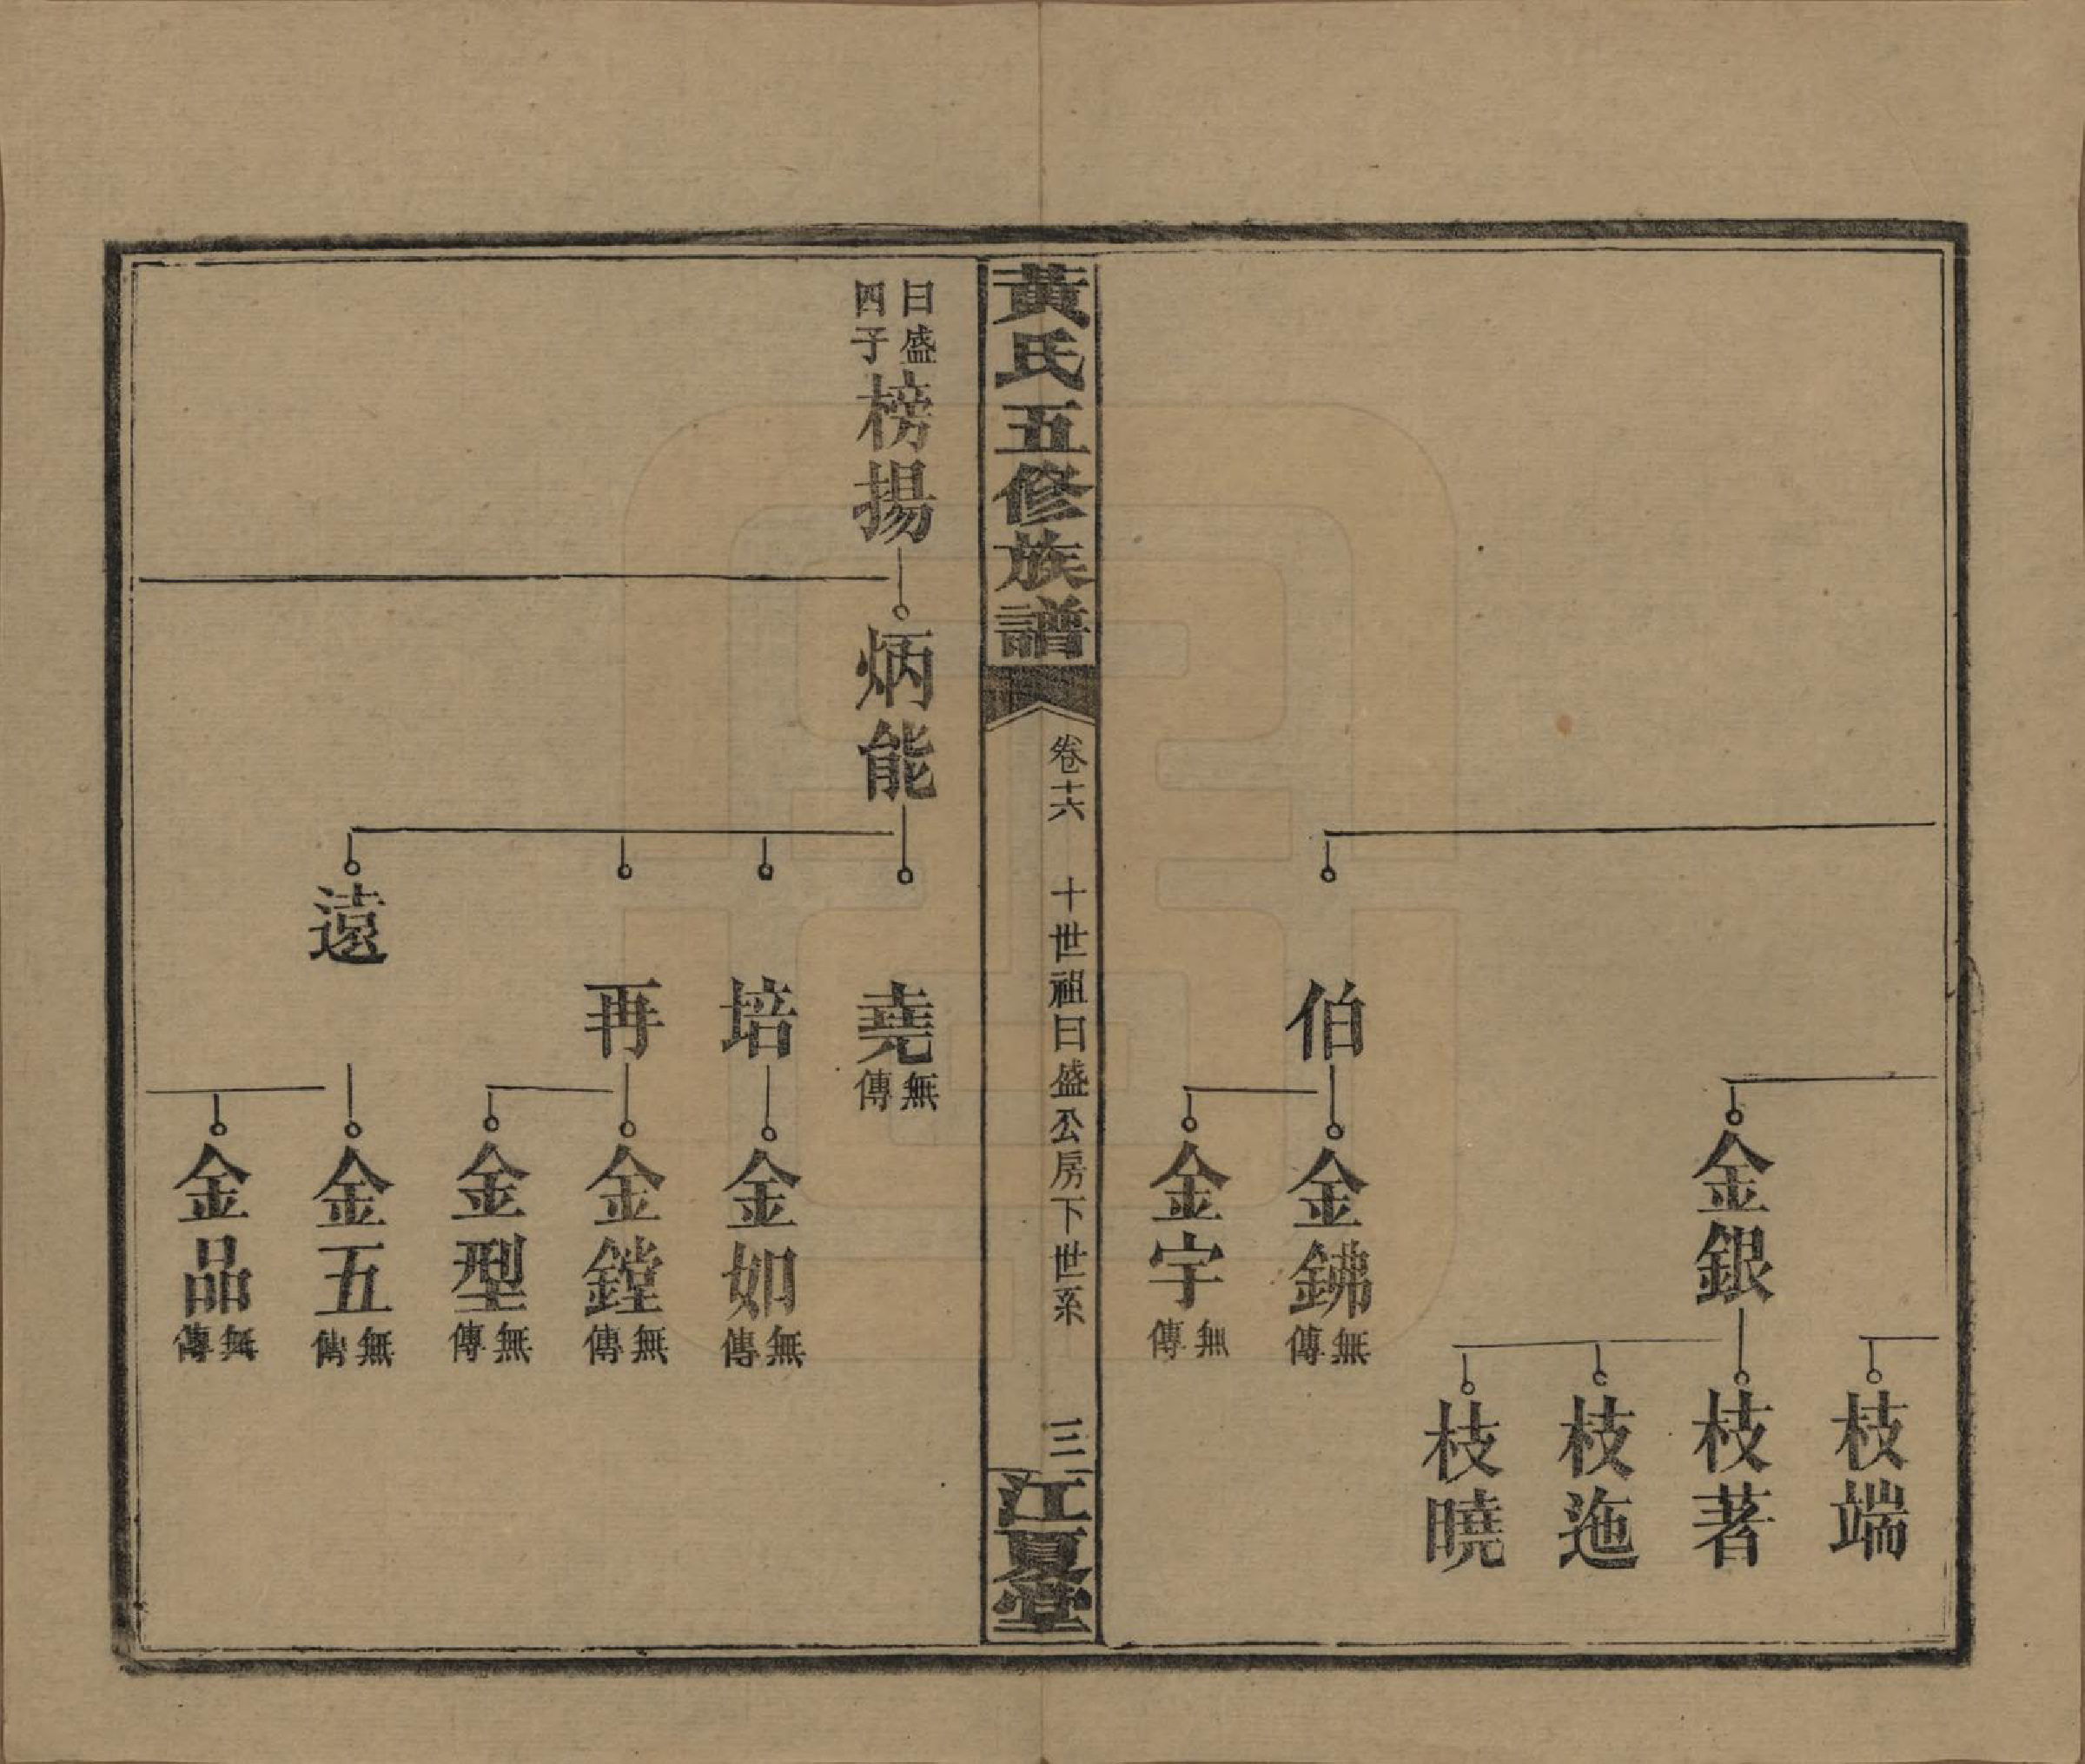 枝端
金銀
枝著
枝迤
枝曉
伯
金鏽無傳
金宇無傳
黃氏五修族譜
卷十六
十世祖日盛公房下世系
三
江夏堂
日盛四子
榜揚
炳能
堯無傳
培
金如無傳
再
金鏜無傳
金型無傳
遠
金五無傳
金品無傳